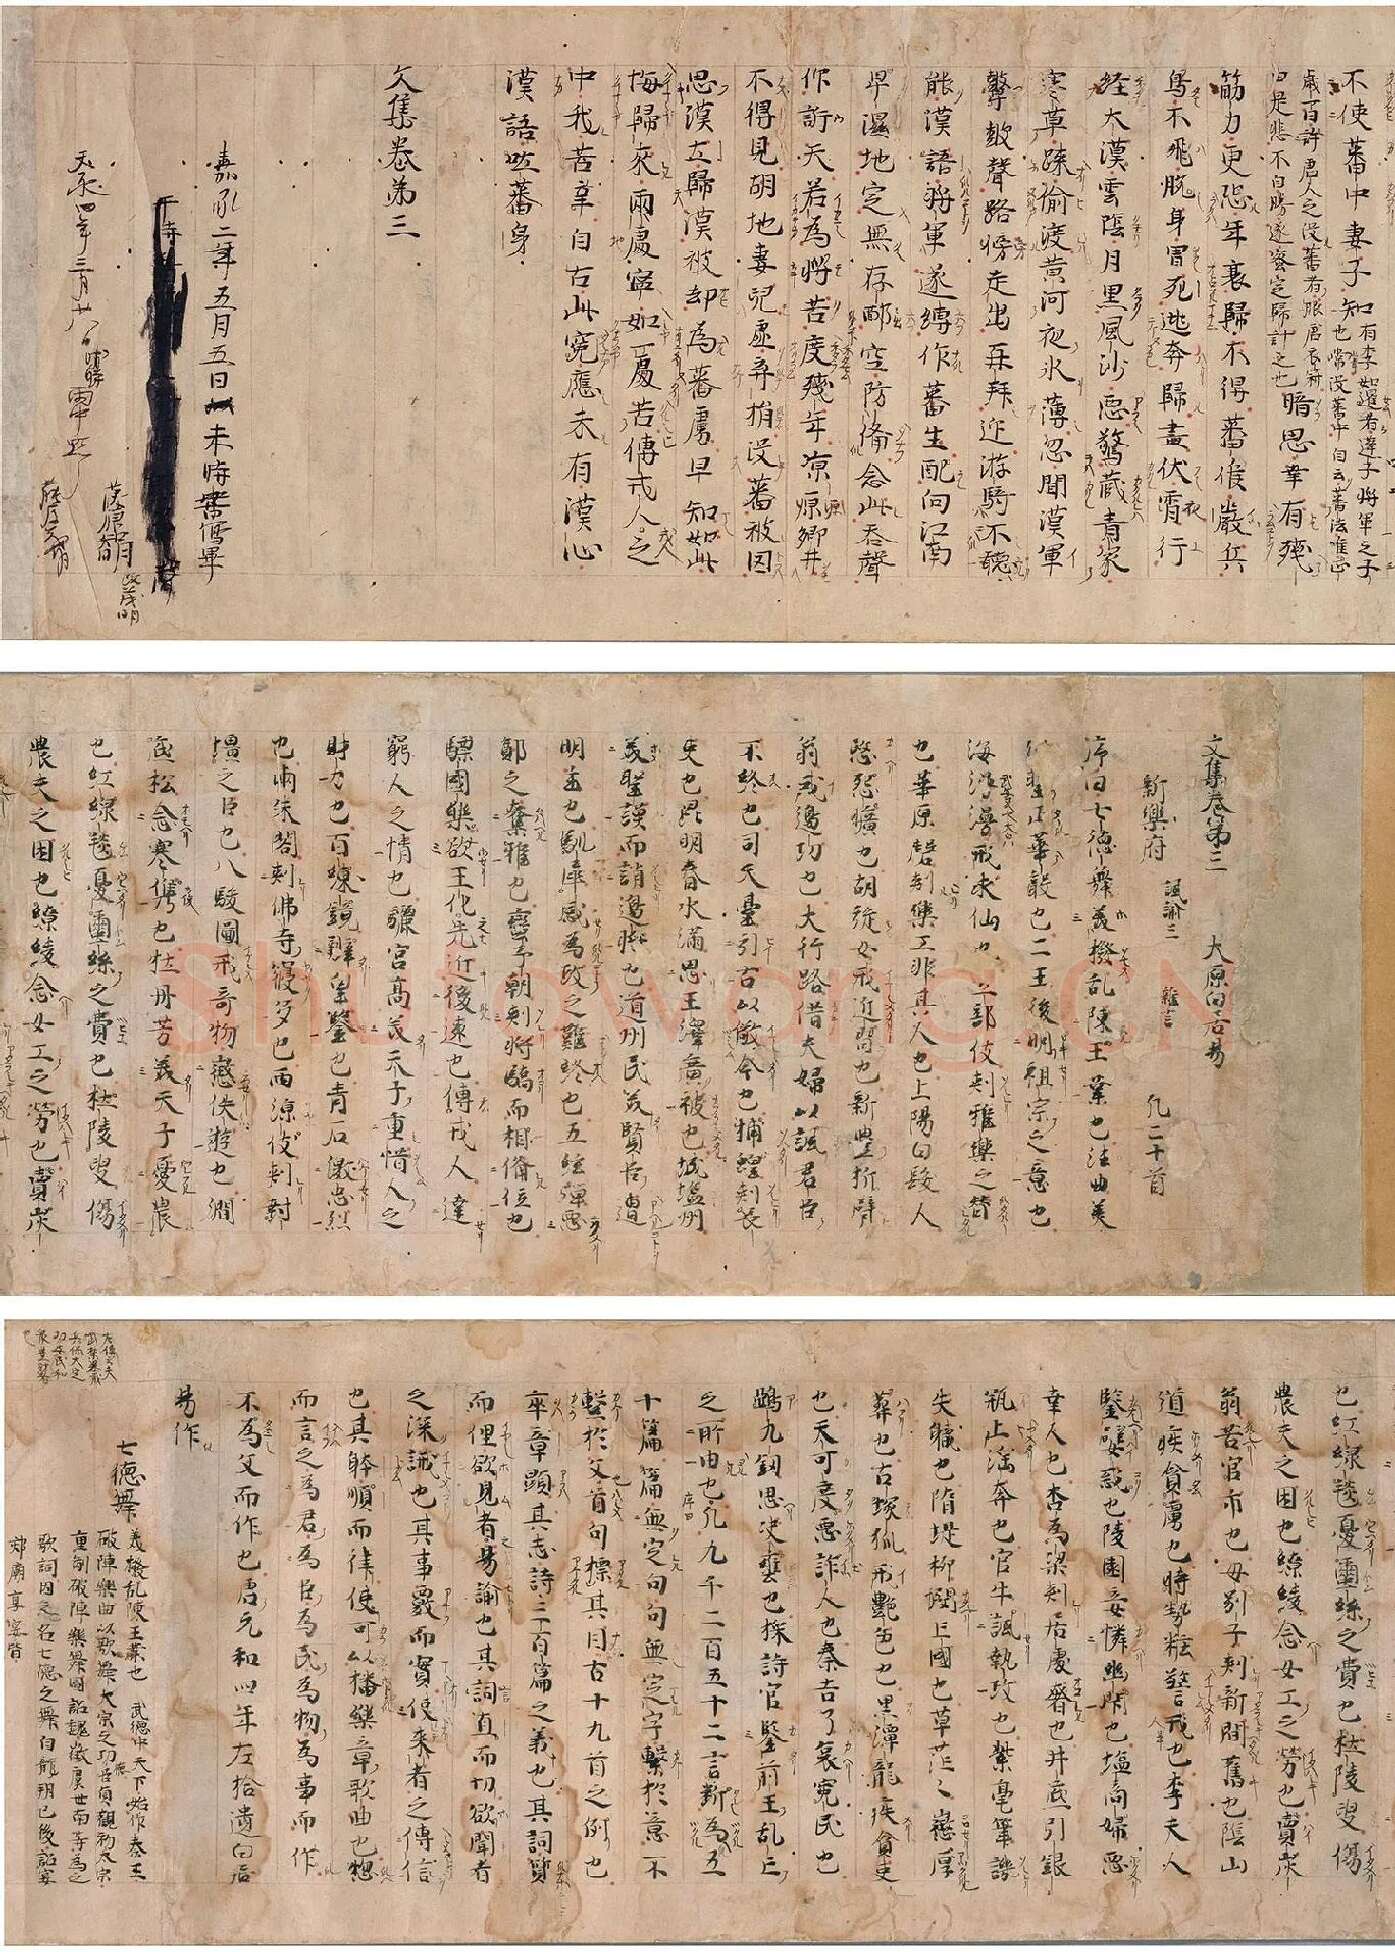 不使蕃中妻子知
有李如暹者蓬子將軍之子也嘗没蕃中自云蕃法唯正
歳
暗思幸有殘
筋力更恐年衰歸不得蕃候嚴兵
鳥不飛脱身冒死逃奔歸晝伏宵行
經大漠雲陰月黒風沙惡驚藏青冢
寒草疎偷渡黄河夜氷薄忽聞漢軍
鼙皷聲路傍走出再拜迎游騎不聽
能漢語將軍遂縛作蕃生配向江南
卑濕地定無存卹空防備念此吞聲
仰訴天若為將苦度殘年凉原鄉井
不得見胡地妻兒虚弃捐没蕃被囚
思漢土歸漢被却為蕃虜早知如此
悔歸来兩處寧如一處苦傳戎人之
中我苦辛自古此寃應未有漢心
漢語吐蕃身
文集卷第三
嘉承二年五月五日未時書寫畢
天永四年三月廿八日
藤原茂明
改茂明
文集卷第三 大原白居易
新樂府 諷諭三 雜言 凡二十首
序曰七德舞美撥乱陳王業也法曲美
正華聲也二王後明祖宗之意也
海漫漫戒求仙也立部伎刺雅樂之替
也華原磬刺樂工非其人也上陽白髮人
愍怨曠也胡旋女戒近習也新豐折臂
翁戒邊功也大行路借夫婦以諷君臣
不終也司天臺引古以儆今也捕蝗刺長
吏也昆明春水滿思王澤廣被也城塩州
美聖謨而誚邊將也道州民美賢臣遭
明主也馴犀感為政之難終也五絃彈惡
鄭之奪雅也蠻子朝刺將驕而相備位也
驃國樂欲王化先近後遠也傳戎人達
窮人之情也驪宮高美天子重惜人之
財力也百煉鏡辯皇鑒也青石激忠烈
也兩朱閣刺佛寺寖多也西凉伎刺封
壃之臣也八駿圖戒奇物懲佚遊也澗
底松念寒雋也牡丹芳美天子憂農
也紅線毯憂蠶絲之費也杜陵叟傷
農夫之困也繚綾念女工之勞也賣炭
也紅線毯憂蠶絲之費也杜陵叟傷
農夫之困也繚綾念女工之勞也賣炭
翁苦官市也母别子刺新間舊也陰山
道疾貪虜也時勢粧警戒也李夫人
鑒嬖惑也陵園妾憐幽閇也塩商婦惡
幸人也杏為梁刺居處奢也井底引銀
瓶止滛奔也官牛諷執政也紫毫筆譏
失職也隋堤柳閔亡國也草茫々懲厚
葬也古塚狐戒艷色也黒潭龍疾貪吏
也天可度惡詐人也秦吉了哀寃民也
鵶九劒思决壅也採詩官鑒前王乱亡
之所由也凡九千二百五十二言斷為五
十篇篇無定句句無定字繫於意不
繫於文首句標其目古十九首之例也
卒章顯其志詩三百篇之義也其詞質
而俚欲見者易諭也其詞直而切欲聞者
之深誡也其事覈而實使来者之傳信
也其躰順而律使可以播樂章歌曲也惣
而言之為君為臣為民為物為事而作
不為文而作也唐元和四年左拾遺白居
易作
七德舞 美撥乱陳王業也 武德中天下始作秦王
破陣樂曲以歌舞大宗之功德貞觀初太宗
重制破陣樂舞圖詔魏徵虞世南等為之
歌詞因之名七德之舞自龍朔已後詔宴
郊廟享宴皆